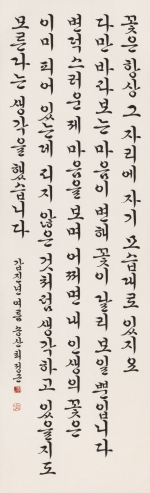 꽃은 항상 그 자리에 자기 모습대로 있지요
다만 바라보는 마음이 변해 꽃이 달리 보일 뿐입니다
변덕스러운 제 마음을 보며 어쩌면 내 인생의 꽃은
이미 피어 있는데 피지 않은 것처럼 생각하고 있을지도
모른다는 생각을 했습니다